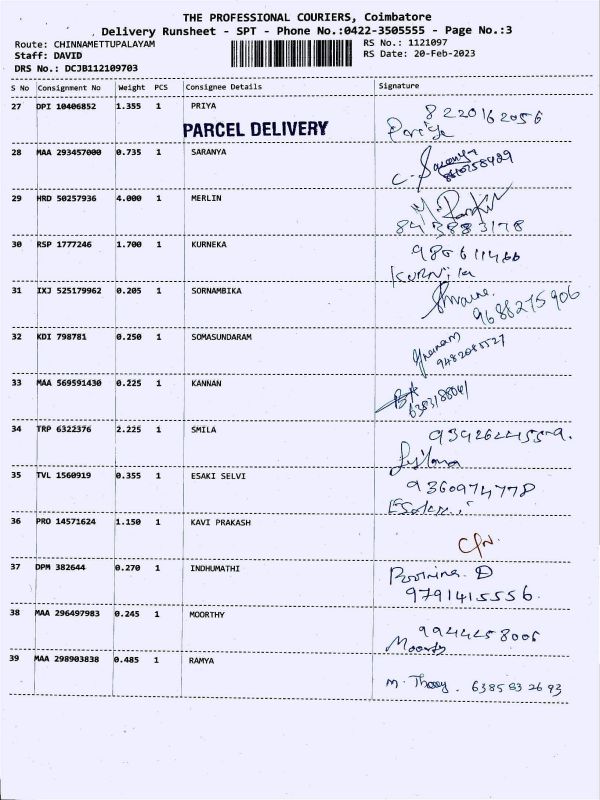 THE PROFESSIONAL COURIERS, Coimbatore
Delivery Runsheet - SPT - Phone No.:0422-3505555 - Page No.:3
Route: CHINNAMETTUPALAYAM
Staff: DAVID
DRS No.: DCJB112109703
RS No.: 1121097
RS Date: 20-Feb-2023
S No Consignment No Weight PCS Consignee Details Signature
27 DPI 10406852 1.355 1 PRIYA 8220162056
PARCEL DELIVERY
28 MAA 293457000 0.735 1 SARANYA
29 HRD 50257936 4.000 1 MERLIN
30 RSP 1777246 1.700 1 KURNEKA
31 IXJ 525179962 0.205 1 SORNAMBIKA
9688275906
32 KDI 798781 0.250 1 SOMASUNDARAM
33 MAA 569591430 0.225 1 KANNAN
34 TRP 6322376 2.225 1 SMILA
35 TVL 1560919 0.355 1 ESAKI SELVI 9360974778
36 PRO 14571624 1.150 1 KAVI PRAKASH
37 DPM 382644 0.270 1 INDHUMATHI
9791415556.
38 MAA 296497983 0.245 1 MOORTHY 9944458006
Moorthy
39 MAA 298903838 0.485 1 RAMYA